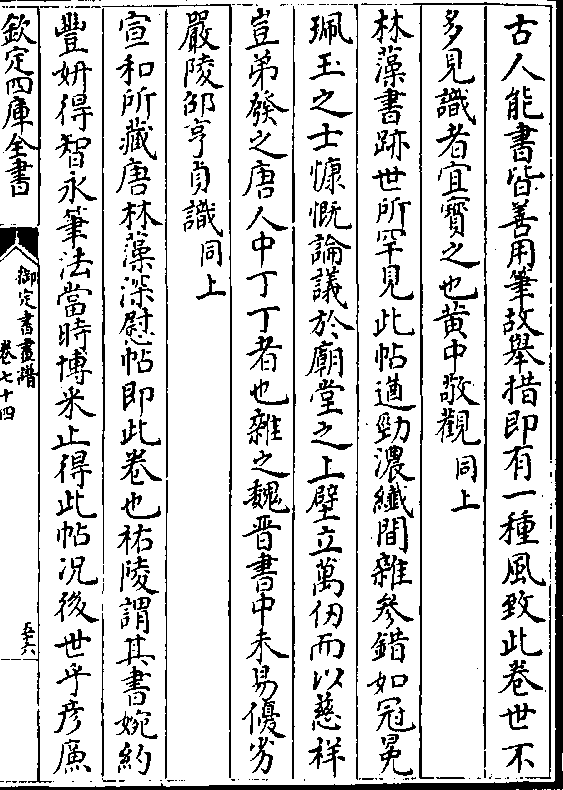 古人能書皆善用筆故舉措即有一種風致此卷世不
多見識者宜寳之也黄中敬觀同上
林藻書跡世所罕見此帖遒勁濃纖間雜參錯如冠冕
珮玉之士慷慨論議於廟堂之上壁立萬仞而以慈祥
豈弟發之唐人中丁丁者也雜之魏晋書中未易優劣
嚴陵邵亨貞識同上
宣和所藏唐林藻深慰帖即此卷也祐陵謂其書婉約
豐妍得智永筆法當時博采止得此帖况後世乎彦廉
欽定四庫全書
御定書畫譜
卷七十四